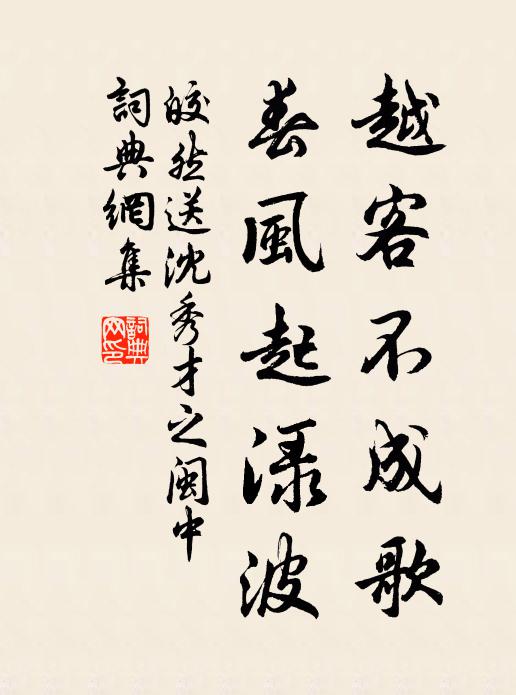 越客不成歌
春風起渌波
皎然送沈秀才之閩中
詞典網集
詞典
网印